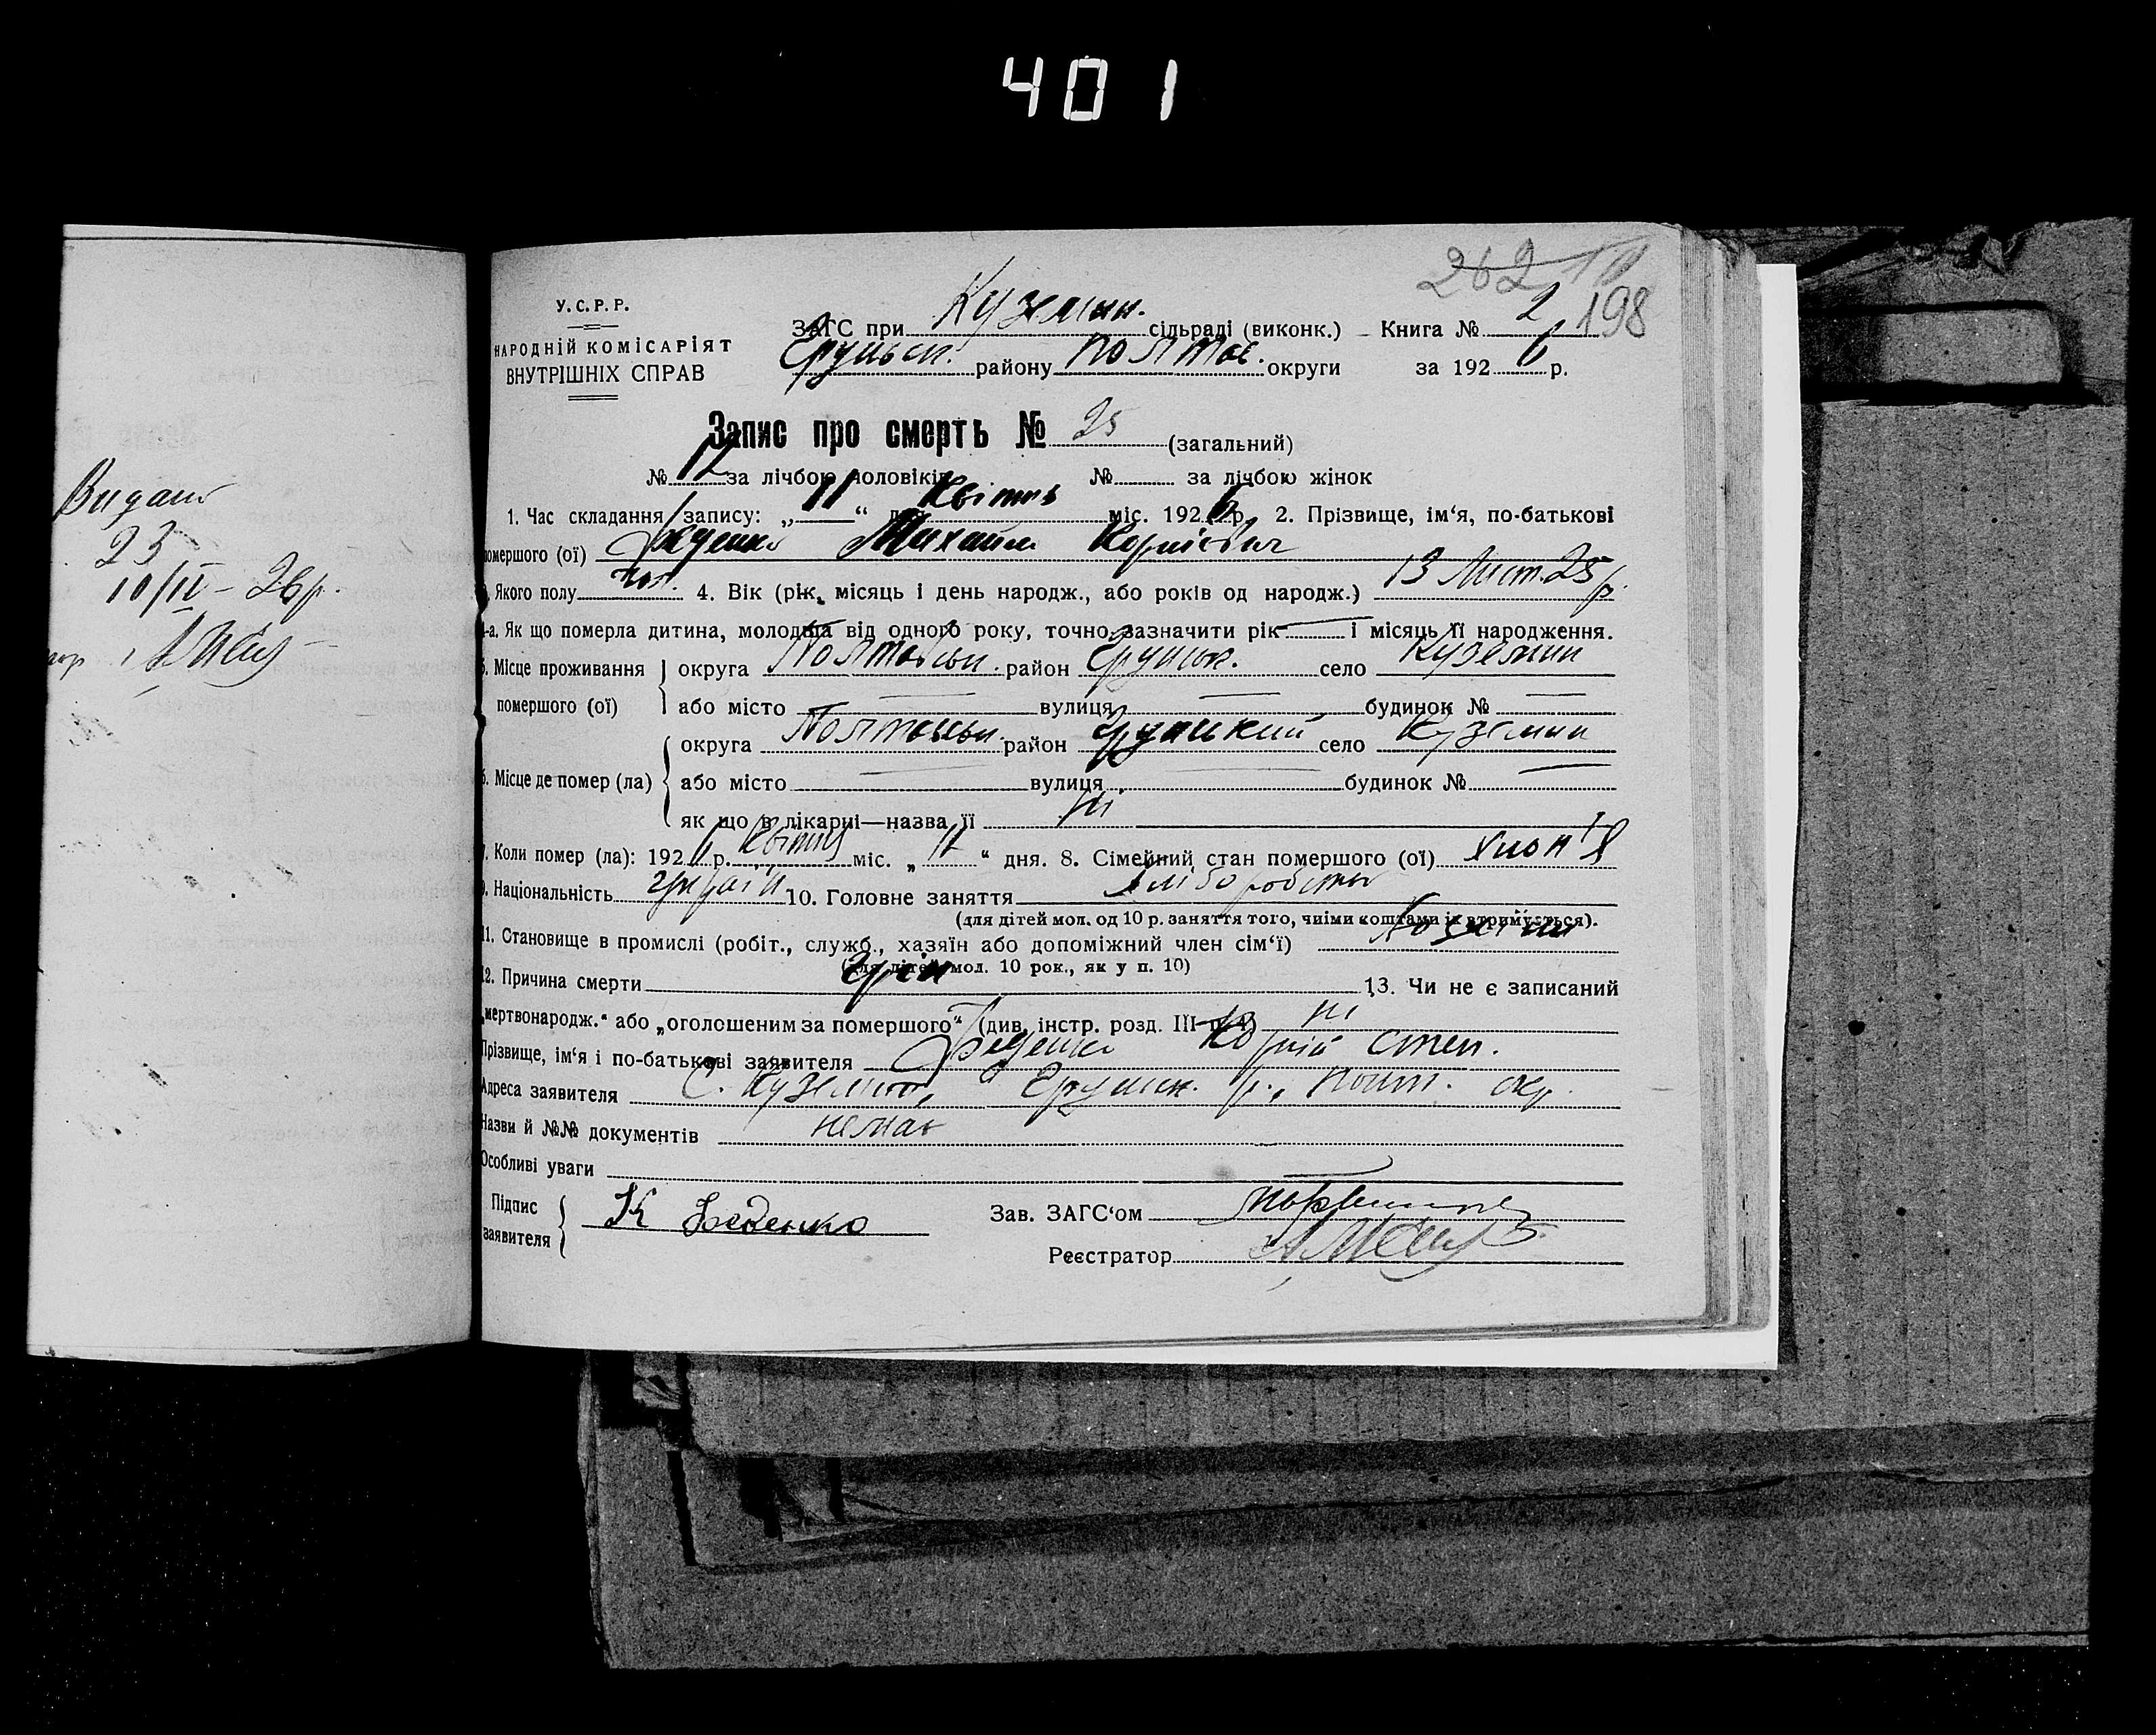 401
262
198
У.С.Р.Р.
НАРОДНІЙ КОМІСАРІЯТ
ВНУТРІШНІХ СПРАВ
ЗАГС при Куземин. сільраді (виконк.) – Книга № 2
Грунськ. району Полтав. округи за 1926 р.
Запис про смерть № 25 (загальний)
№ 12 за лічбою чоловіків № за лічбою жінок
1. Час складання запису: „11“ дня Квітня міс. 1926 р. 2. Прізвище, ім‘я, по-батькові
помершого (ої) Феденко Михайло Корнієвич
Якого полу чол. 4. Вік (рік, місяць і день народж., або років од народж.) 13 Лист. 25 р.
4-а. Як що померла дитина, молодша від одного року, точно зазначити рік і місяць її народження.
5. Місце проживання помершого (ої) округа Полтавськ. район Грунськ. село Куземин
або місто вулиця будинок №
6. Місце де помер (ла) округа Полтавськ. район Грунський село Куземин
або місто вулиця будинок №
як що в лікарні—назва її Ні
7. Коли помер (ла): 1926 р. Квітня міс. „ “ дня. 8. Сімейний стан помершого (ої)
9. Національність 10. Головне заняття Хлібороби
(для дітей мол. од 10 р. заняття того, чиїми коштами їх втримується).
11. Становище в промислі (робіт., служб., хазяїн або допоміжний член сім‘ї)
(для дітей мол. 10 рок., як у п. 10)
12. Причина смерти Гріп 13. Чи не є записаний
„мертвонародж.“ або „оголошеним за помершого“ (див. інстр. розд. III п. 4) ні
Прізвище, ім‘я і по-батькові заявителя Феденко Корній Степ.
Адреса заявителя С. Куземин, Грунськ. р., Полт. окр.
Назви й №№ документів немає
Особливі уваги
Підпис заявителя К Феденко
Зав. ЗАГС‘ом
Реєстратор
Видано
23
10/IV – 26 р.